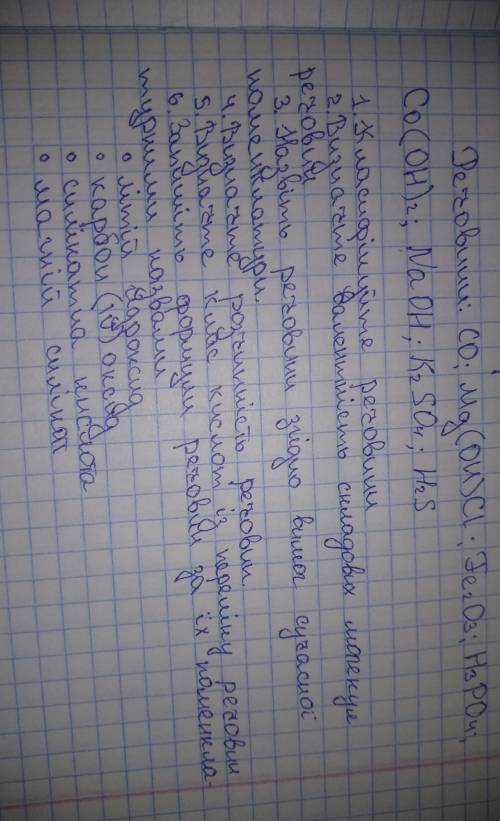 Речовини: CO; Mg(OH)Cl; Fe2O3; H3PO4;
Co(OH)2; NaOH; K2SO4; H2S
1. Класифікуйте речовини
2. Визначте валентність складових молекул
речовин
3. Назвіть речовини згідно вимог сучасної
номенклатури.
4. Визначте розчинність речовин.
5. Визначте клас кислот із переліку речовин
6. Запишіть формули речовин за їх номенкла-
турними назвами
• літій гідроксид
• карбон (IV) оксид
• силікатна кислота
• магній силікат